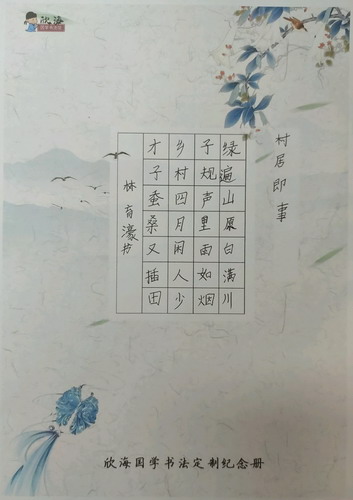 欣海
村居即事
绿遍山原白满川
子规声里雨如烟
乡村四月闲人少
才子蚕桑又插田
林育濠书
欣海国学书法定制纪念册